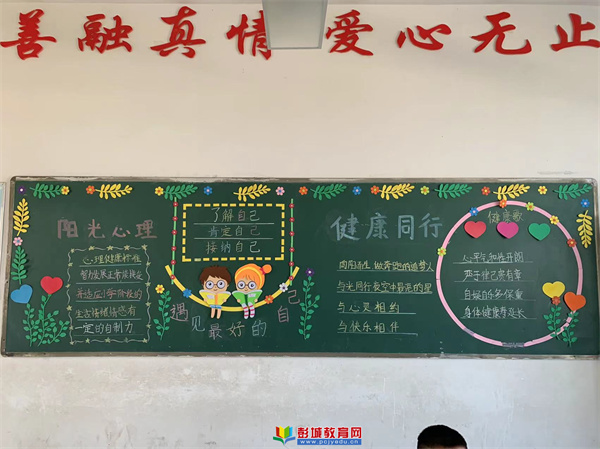 善融真情 爱心无止
阳光心理
心理健康标准
智力发展正常接发
有适应学习阶段的
生活情绪情感有
一定的自制力
了解自己
肯定自己
接纳自己
遇见最好的自己
健康同行
做奔跑的追梦人
与志同行
与心灵相约
与快乐相伴
健康歌
心平气和性开朗
严于律己
自娱自乐多保重
身体健康寿延长
彭城教育网
www.pcjyedu.cn